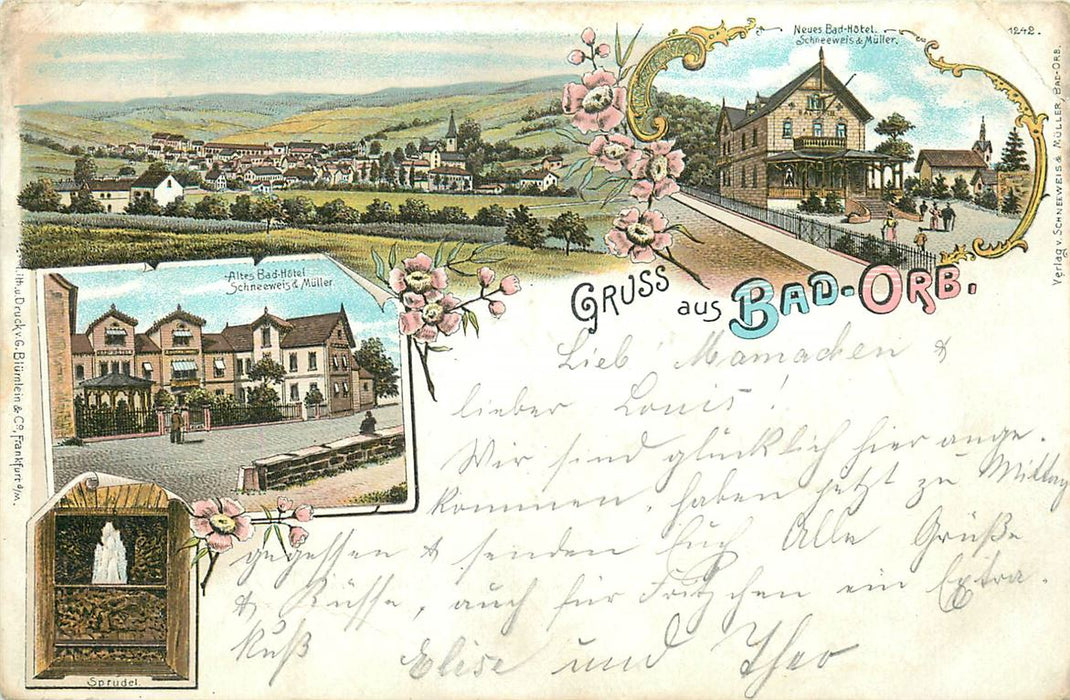 Neues Bad-Hôtel.
Schneeweis & Müller.
1242.
Verlag v. Schneeweis & Müller, Bad-Orb.
BAD HOTEL
Altes Bad-Hôtel
Schneeweis & Müller.
Lith. u. Druck v. G. Blümlein & Co., Frankfurt a/M.
Sprudel.
Gruss aus Bad-Orb.
Lieb Mamachen &
lieber Louis!
Wir sind glücklich hier ange-
kommen, haben jetzt zu Mittag
gegessen & senden Euch Alle Grüße
& Küsse, auch für Fritzchen ein Extra-
kuß Elise und Theo